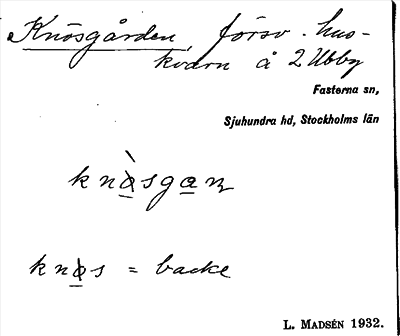 Knösgården, försv. hus-
kvarn å 2 Ubby
Fasterna sn,
Sjuhundra hd, Stockholms län
= backe
L. MADSÉN 1932.